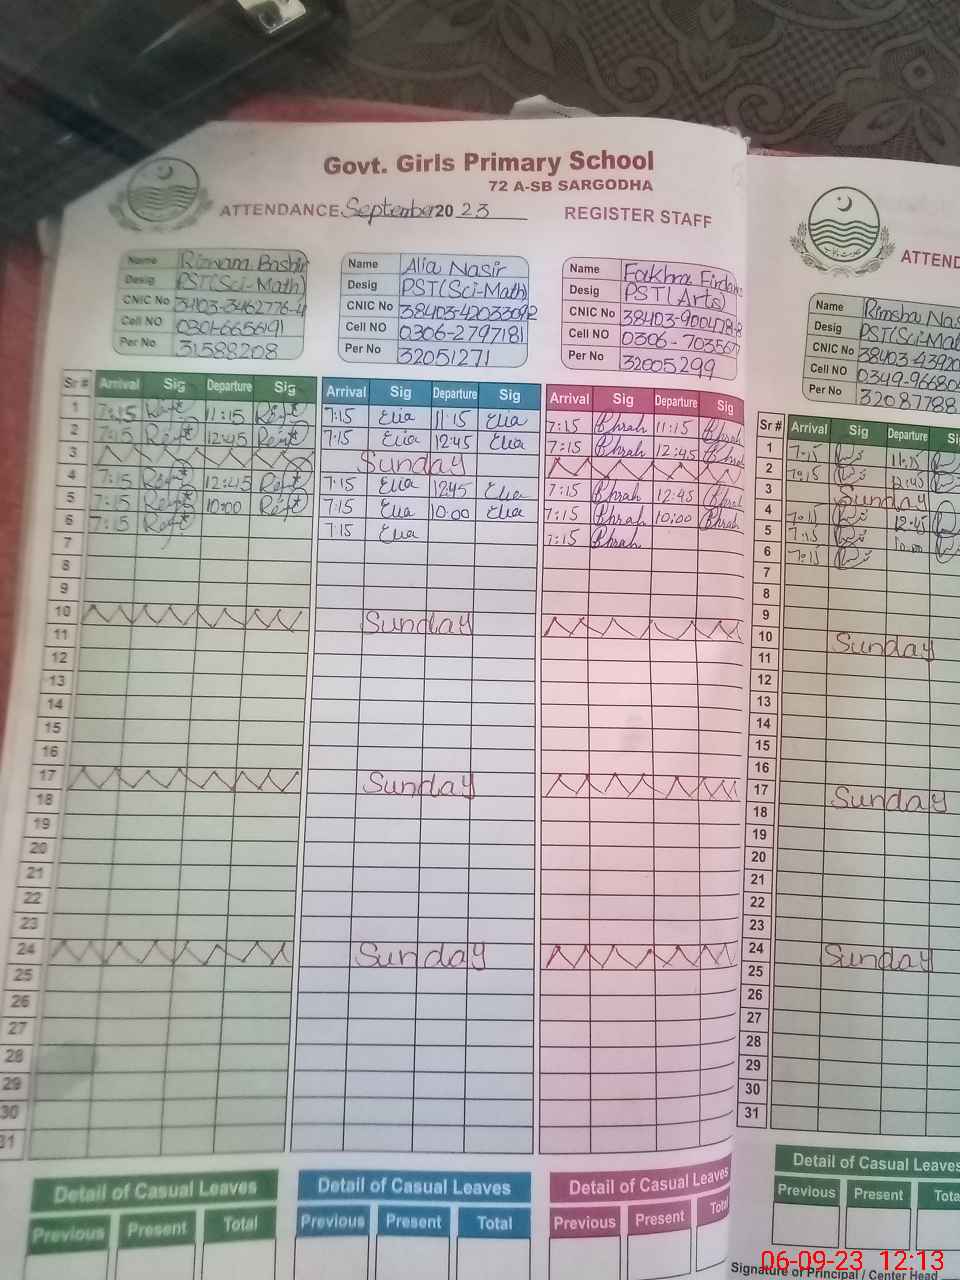 Govt. Girls Primary School
72 A-SB SARGODHA
ATTENDANCE September 2023
REGISTER STAFF
ATTEND
Name Bashir
Desig PST(Sci-Math)
CNIC No
Cell NO
Per No 31588208
Name Alia Nasir
Desig PST(Sci-Math)
CNIC No 38403-42033092
Cell NO 0306-2797181
Per No 32051271
Name Fakhra
Desig PST(Arts)
CNIC No
Cell NO 0306-703567
Per No 32005299
Name Rimsha Nas
Desig PST(Sci-Mat
CNIC No 38403-43920
Cell NO 0349-96680
Per No 32087788
Sr # Arrival Sig Departure Sig Arrival Sig Departure Sig Arrival Sig Departure Sig Sr # Arrival Sig Departure Si
1 7:15 11:15 7:15 11:15 7:15 11:15 1 7:15 11:15
2 7:15 12:45 7:15 12:45 7:15 12:45 2 7:15 12:45
3 Sunday 3 Sunday
4 7:15 12:45 7:15 12:45 7:15 12:45 4 7:15 12:45
5 7:15 10:00 7:15 10:00 7:15 10:00 5 7:15 10:00
6 7:15 7:15 7:15 6 7:15
7 7
8 8
9 9
10 Sunday 10 Sunday
11 11
12 12
13 13
14 14
15 15
16 16
17 Sunday 17 Sunday
18 18
19 19
20 20
21 21
22 22
23 23
24 Sunday 24 Sunday
25 25
26 26
27 27
28 28
29 29
30 30
31 31
Detail of Casual Leaves Detail of Casual Leaves Detail of Casual Leaves Detail of Casual Leaves
Previous Present Total Previous Present Total Previous Present Total Previous Present Tota
Signature of Principal / Center Head
06-09-23 12:13